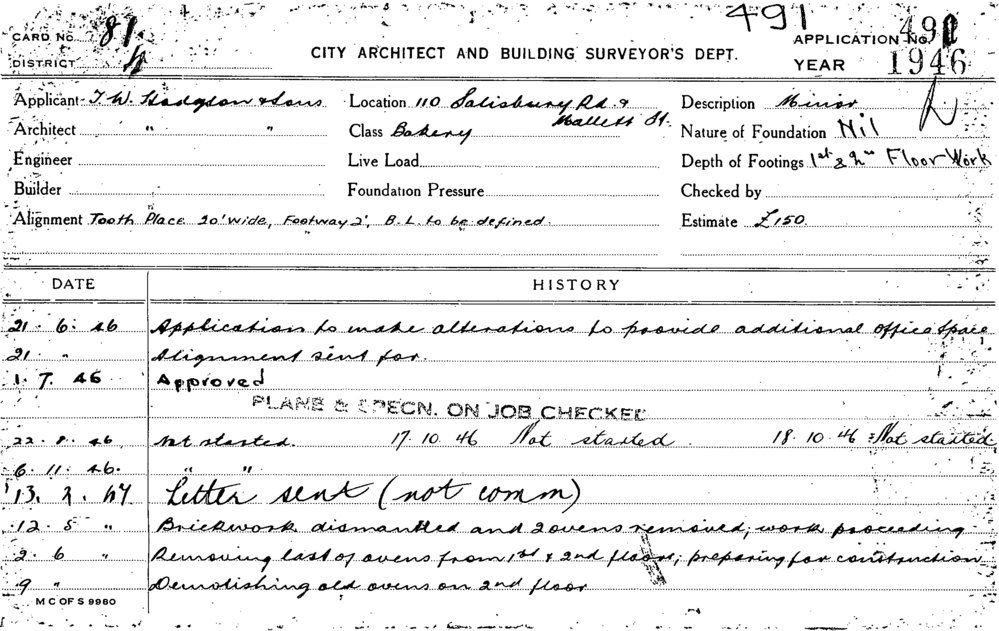 491
CARD No. 81/4
APPLICATION No. 491
DISTRICT
CITY ARCHITECT AND BUILDING SURVEYOR'S DEPT.
YEAR 1946
Applicant T. W. Hodgson & Sons Location 110 Salisbury Rd. & Mallett St. Description Minor
Architect " " Class Bakery Nature of Foundation Nil
Engineer Live Load Depth of Footings 1st & 2nd Floor Work
Builder Foundation Pressure Checked by
Alignment Tooth Place 20' wide, Footway 2', B.L. to be defined. Estimate £150.
DATE HISTORY
21. 6. 46 Application to make alterations to provide additional office space
21 " Alignment sent for.
1. 7. 46 Approved
PLANS & SPECN. ON JOB CHECKED
22. 8. 46 Not started. 17. 10. 46 Not started. 18. 10. 46 Not started.
6. 11. 46. " "
13. 2. 47 Letter sent (not comm)
12. 5 " Brickwork dismantled and 2 ovens removed; work proceeding
2. 6 " Removing last of ovens from 1st & 2nd floors; preparing for construction
9 " Demolishing old ovens on 2nd floor
M C OF S 9980